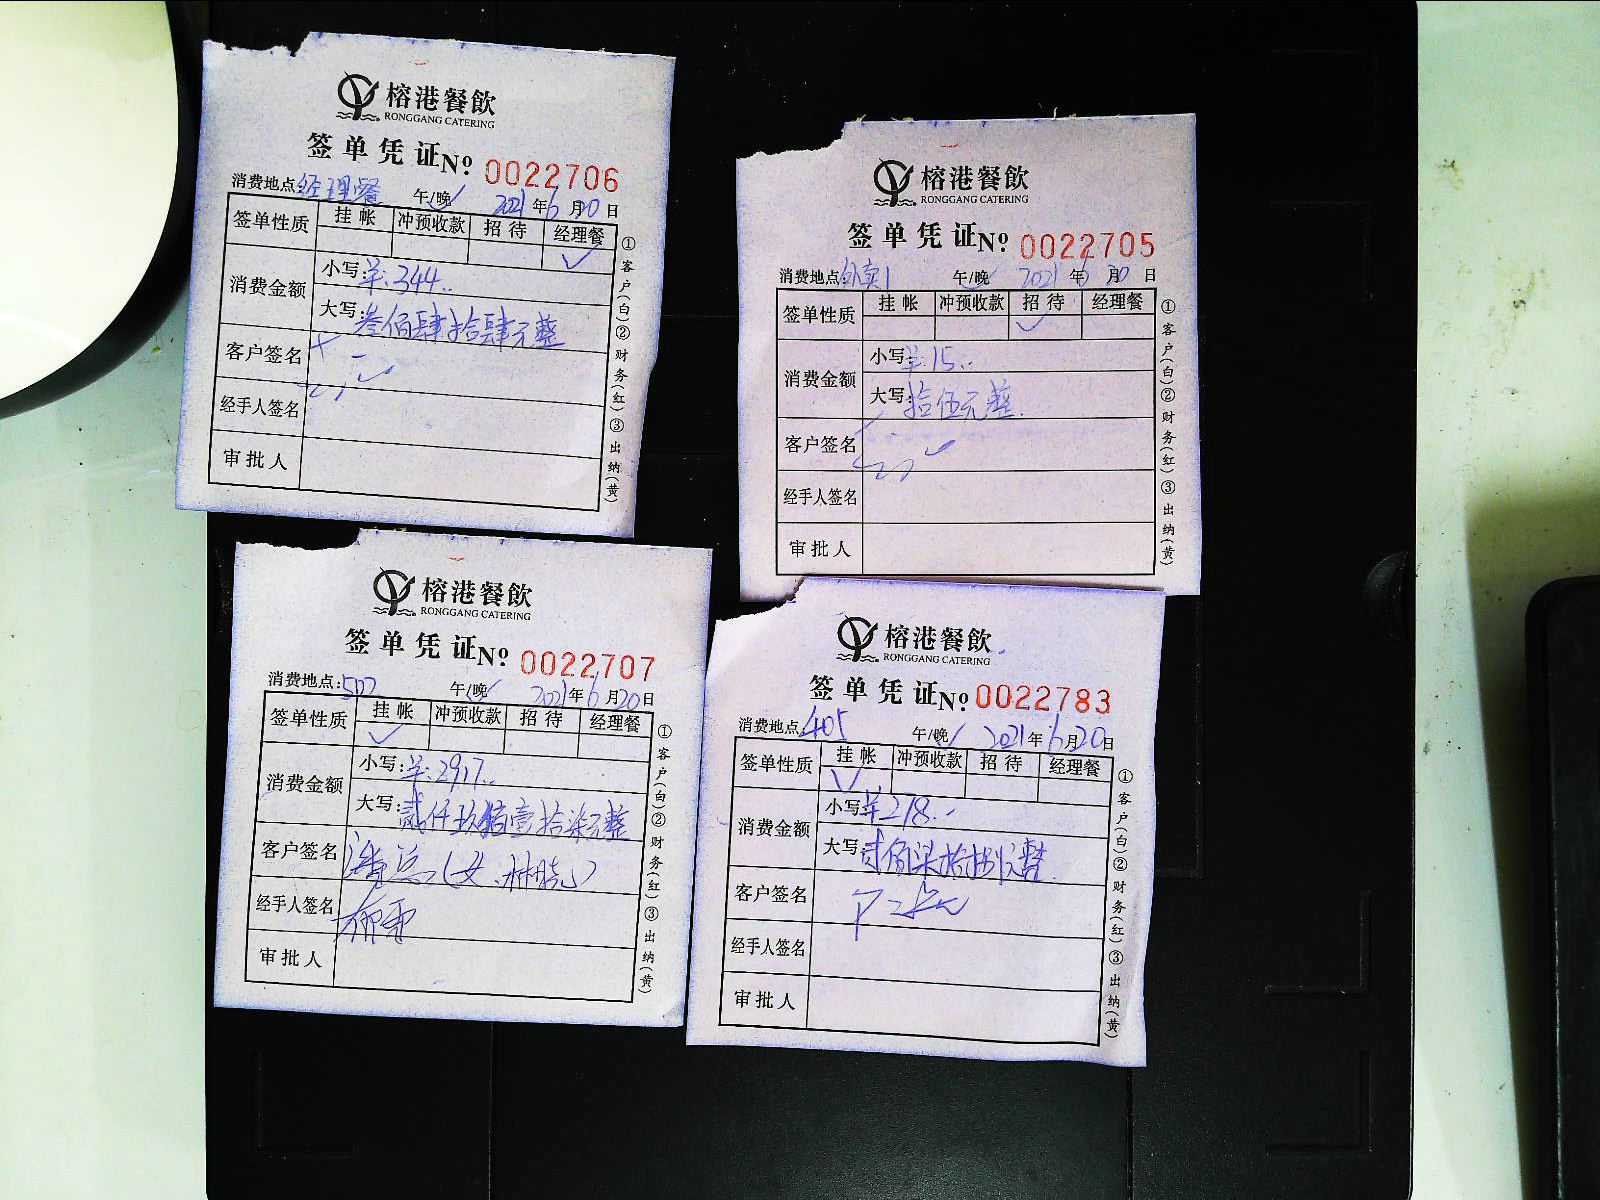 榕港餐飲
RONGGANG CATERING
签单凭证 Nº 0022706
消费地点:经理餐 午/晚 2021年6月20日
签单性质 挂帐 冲预收款 招待 经理餐
✓
消费金额 小写:羊:344..
大写:叁佰肆拾肆元整
客户签名
经手人签名
审批人
①客户(白)②财务(红)③出纳(黄)
榕港餐飲
RONGGANG CATERING
签单凭证 Nº 0022705
消费地点:外卖1 午/晚 2021年6月20日
签单性质 挂帐 冲预收款 招待 经理餐
✓
消费金额 小写:羊:15..
大写:拾伍元整
客户签名
经手人签名
审批人
①客户(白)②财务(红)③出纳(黄)
榕港餐飲
RONGGANG CATERING
签单凭证 Nº 0022707
消费地点: 午/晚 2021年6月20日
签单性质 挂帐 冲预收款 招待 经理餐
✓
消费金额 小写:羊:2917..
大写:贰仟玖佰壹拾柒元整
客户签名 潘总(女、林晓)
经手人签名
审批人
①客户(白)②财务(红)③出纳(黄)
榕港餐飲
RONGGANG CATERING
签单凭证 Nº 0022783
消费地点:405 午/晚 2021年6月20日
签单性质 挂帐 冲预收款 招待 经理餐
✓
消费金额 小写:羊278..
大写:贰佰柒拾捌元整
客户签名
经手人签名
审批人
①客户(白)②财务(红)③出纳(黄)